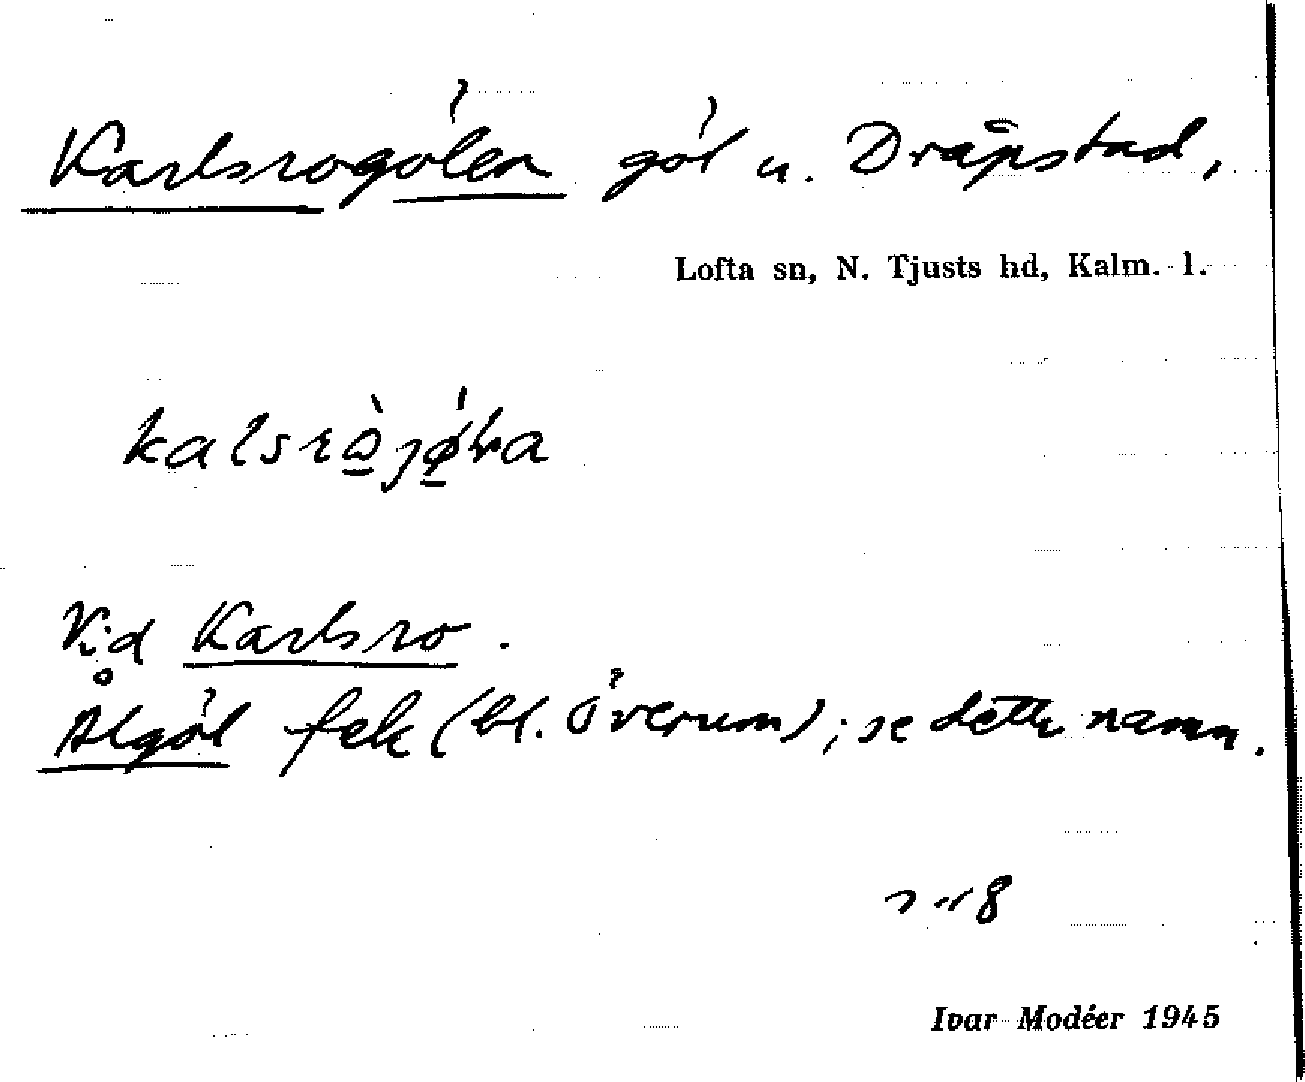 Karlsrogölen göl u. Dråpstad,
Lofta sn, N. Tjusts hd, Kalm. l.
Vid Karlsro.
Ålgöl fek (bl. Överum); se detta namn.
Ivar Modéer 1945